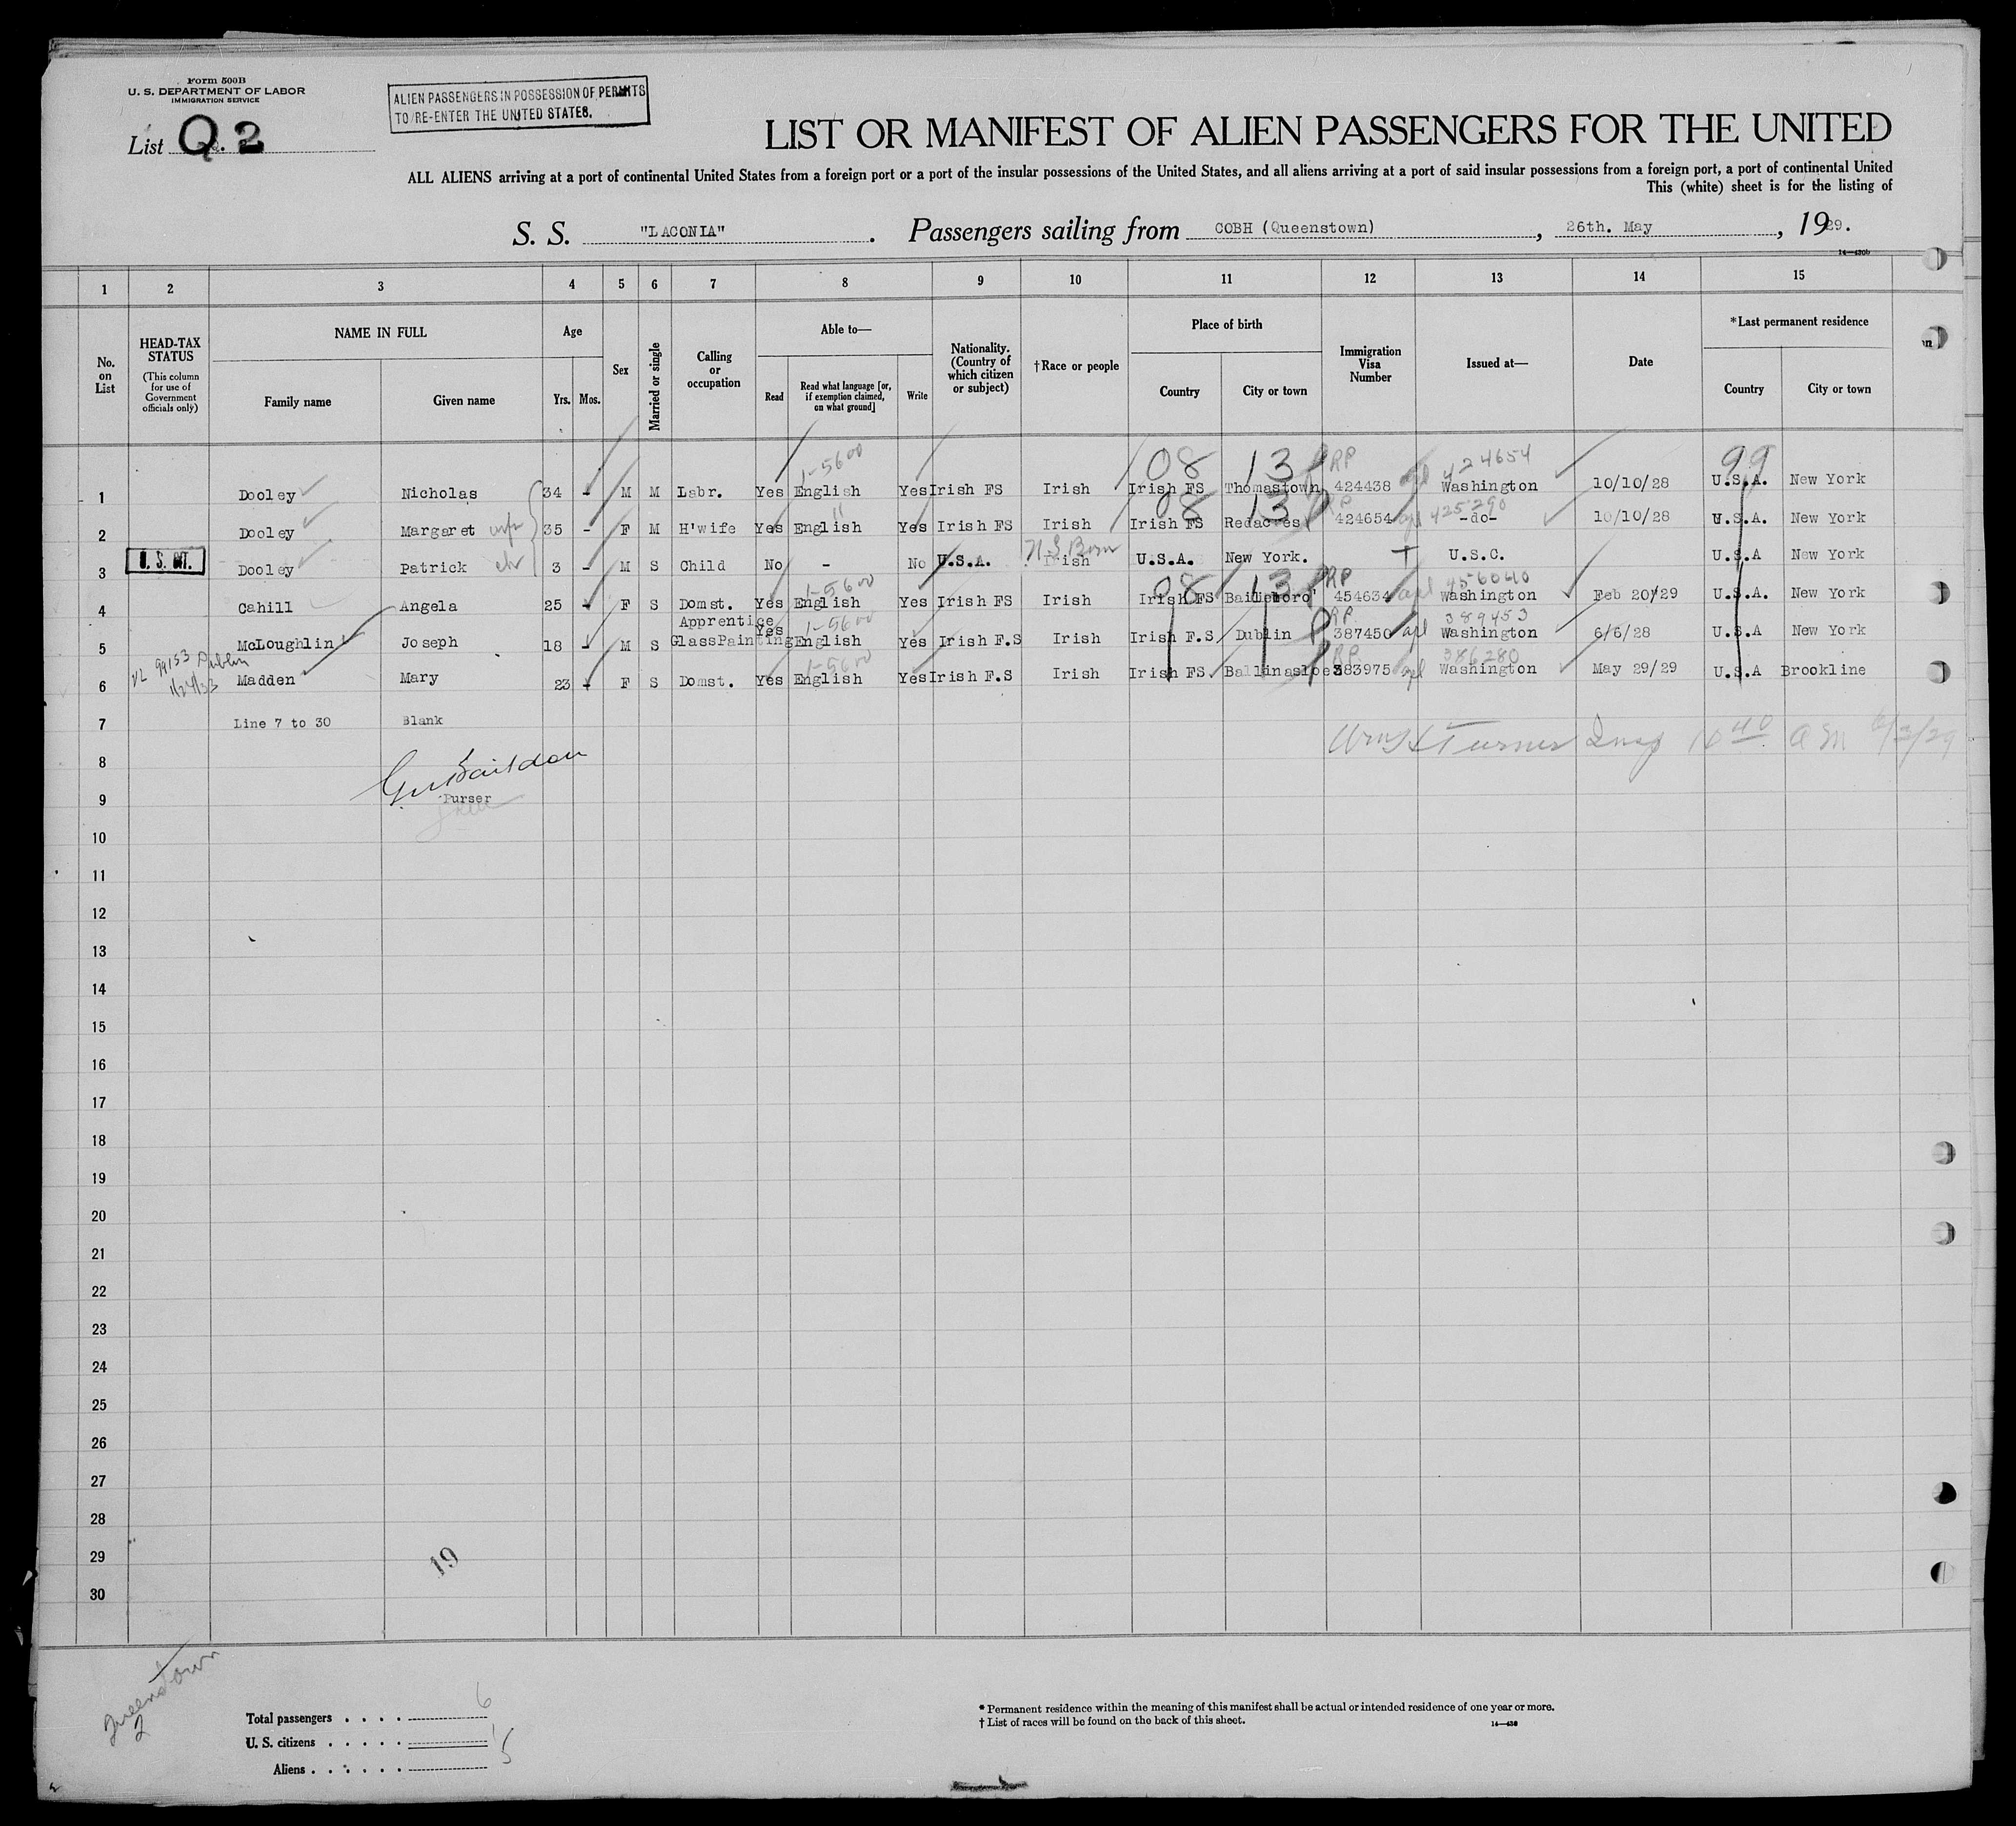 Form 500B
U. S. DEPARTMENT OF LABOR
IMMIGRATION SERVICE
List Q. 2
ALIEN PASSENGERS IN POSSESSION OF PERMITS
TO RE-ENTER THE UNITED STATES.
LIST OR MANIFEST OF ALIEN PASSENGERS FOR THE UNITED
ALL ALIENS arriving at a port of continental United States from a foreign port or a port of the insular possessions of the United States, and all aliens arriving at a port of said insular possessions from a foreign port, a port of continental United
This (white) sheet is for the listing of
S. S. "LACONIA". Passengers sailing from COBH (Queenstown), 26th. May, 1929.
14—430b
1 2 3 4 5 6 7 8 9 10 11 12 13 14 15
No. on List
HEAD-TAX STATUS
(This column for use of Government officials only)
NAME IN FULL
Family name Given name
Age
Yrs. Mos.
Sex
Married or single
Calling or occupation
Able to—
Read Read what language [or, if exemption claimed, on what ground] Write
Nationality. (Country of which citizen or subject)
†Race or people
Place of birth
Country City or town
Immigration Visa Number
Issued at—
Date
*Last permanent residence
Country City or town
1-5600 08 13 RP 424654 99
1 Dooley Nicholas 34 - M M Labr. Yes English Yes Irish FS Irish Irish FS Thomastown 424438 Washington 10/10/28 U.S.A. New York
" 08 13 RP 425290
2 Dooley Margaret wife 35 - F M H'wife Yes English Yes Irish FS Irish Irish FS 424654 -do- 10/10/28 U.S.A. New York
U. S. CIT. U.S Born
3 Dooley Patrick chr 3 - M S Child No - No U.S.A. Irish U.S.A. New York. U.S.C. U.S.A New York
1-5600 08 13 RP 456040
4 Cahill Angela 25 - F S Domst. Yes English Yes Irish FS Irish Irish FS Bailieboro' 454634 Washington Feb 20/29 U.S.A. New York
Apprentice 1-5600 RP. 389453
5 McLoughlin Joseph 18 - M S GlassPainting Yes English Yes Irish F.S Irish Irish F.S Dublin 387450 Washington 6/6/28 U.S.A New York
99153 Dublin 1/24/23 1-5600 RP 386280
6 Madden Mary 23 - F S Domst. Yes English Yes Irish F.S Irish Irish FS. Ballinasloe 383975 Washington May 29/29 U.S.A Brookline
7 Line 7 to 30 Blank
Wm H Turner Insp 10 40 AM 6/3/29
8
9 Purser
10
11
12
13
14
15
16
17
18
19
20
21
22
23
24
25
26
27
28
29
19
30
Queenstown
2
Total passengers . . . . 6
U. S. citizens . . . . . 1
Aliens . . . . . . 5
* Permanent residence within the meaning of this manifest shall be actual or intended residence of one year or more.
† List of races will be found on the back of this sheet.
14—430